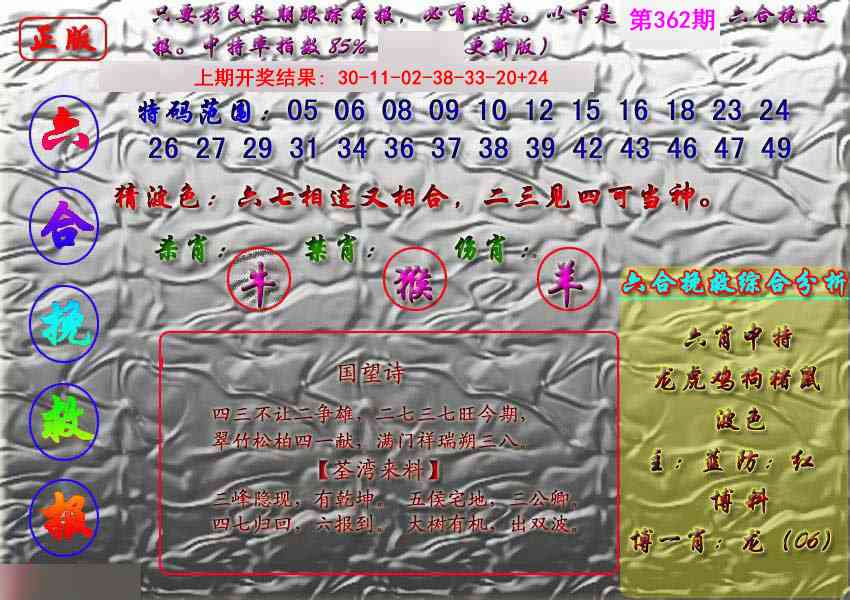 正版
只要彩民长期跟踪本报，必有收获。以下是 第362期 六合挽救
报。中特率指数85% 更新版）
上期开奖结果：30-11-02-38-33-20+24
六合挽救报
特码范围：05 06 08 09 10 12 15 16 18 23 24
26 27 29 31 34 36 37 38 39 42 43 46 47 49
猜波色：六七相连又相合，二三见四可当神。
杀肖： 牛 禁肖： 猴 伤肖： 羊
国望诗
四三不让二争雄，二七三七旺今期，
翠竹松柏四一献，满门祥瑞朔三八。
【荃湾来料】
三峰隐现，有乾坤。 五侯宅地，三公卿。
四七归回，六报到。 大树有机，出双波。
六合挽救综合分析
六肖中特
龙虎鸡狗猪鼠
波色
主：蓝防：红
博料
博一肖：龙（06）